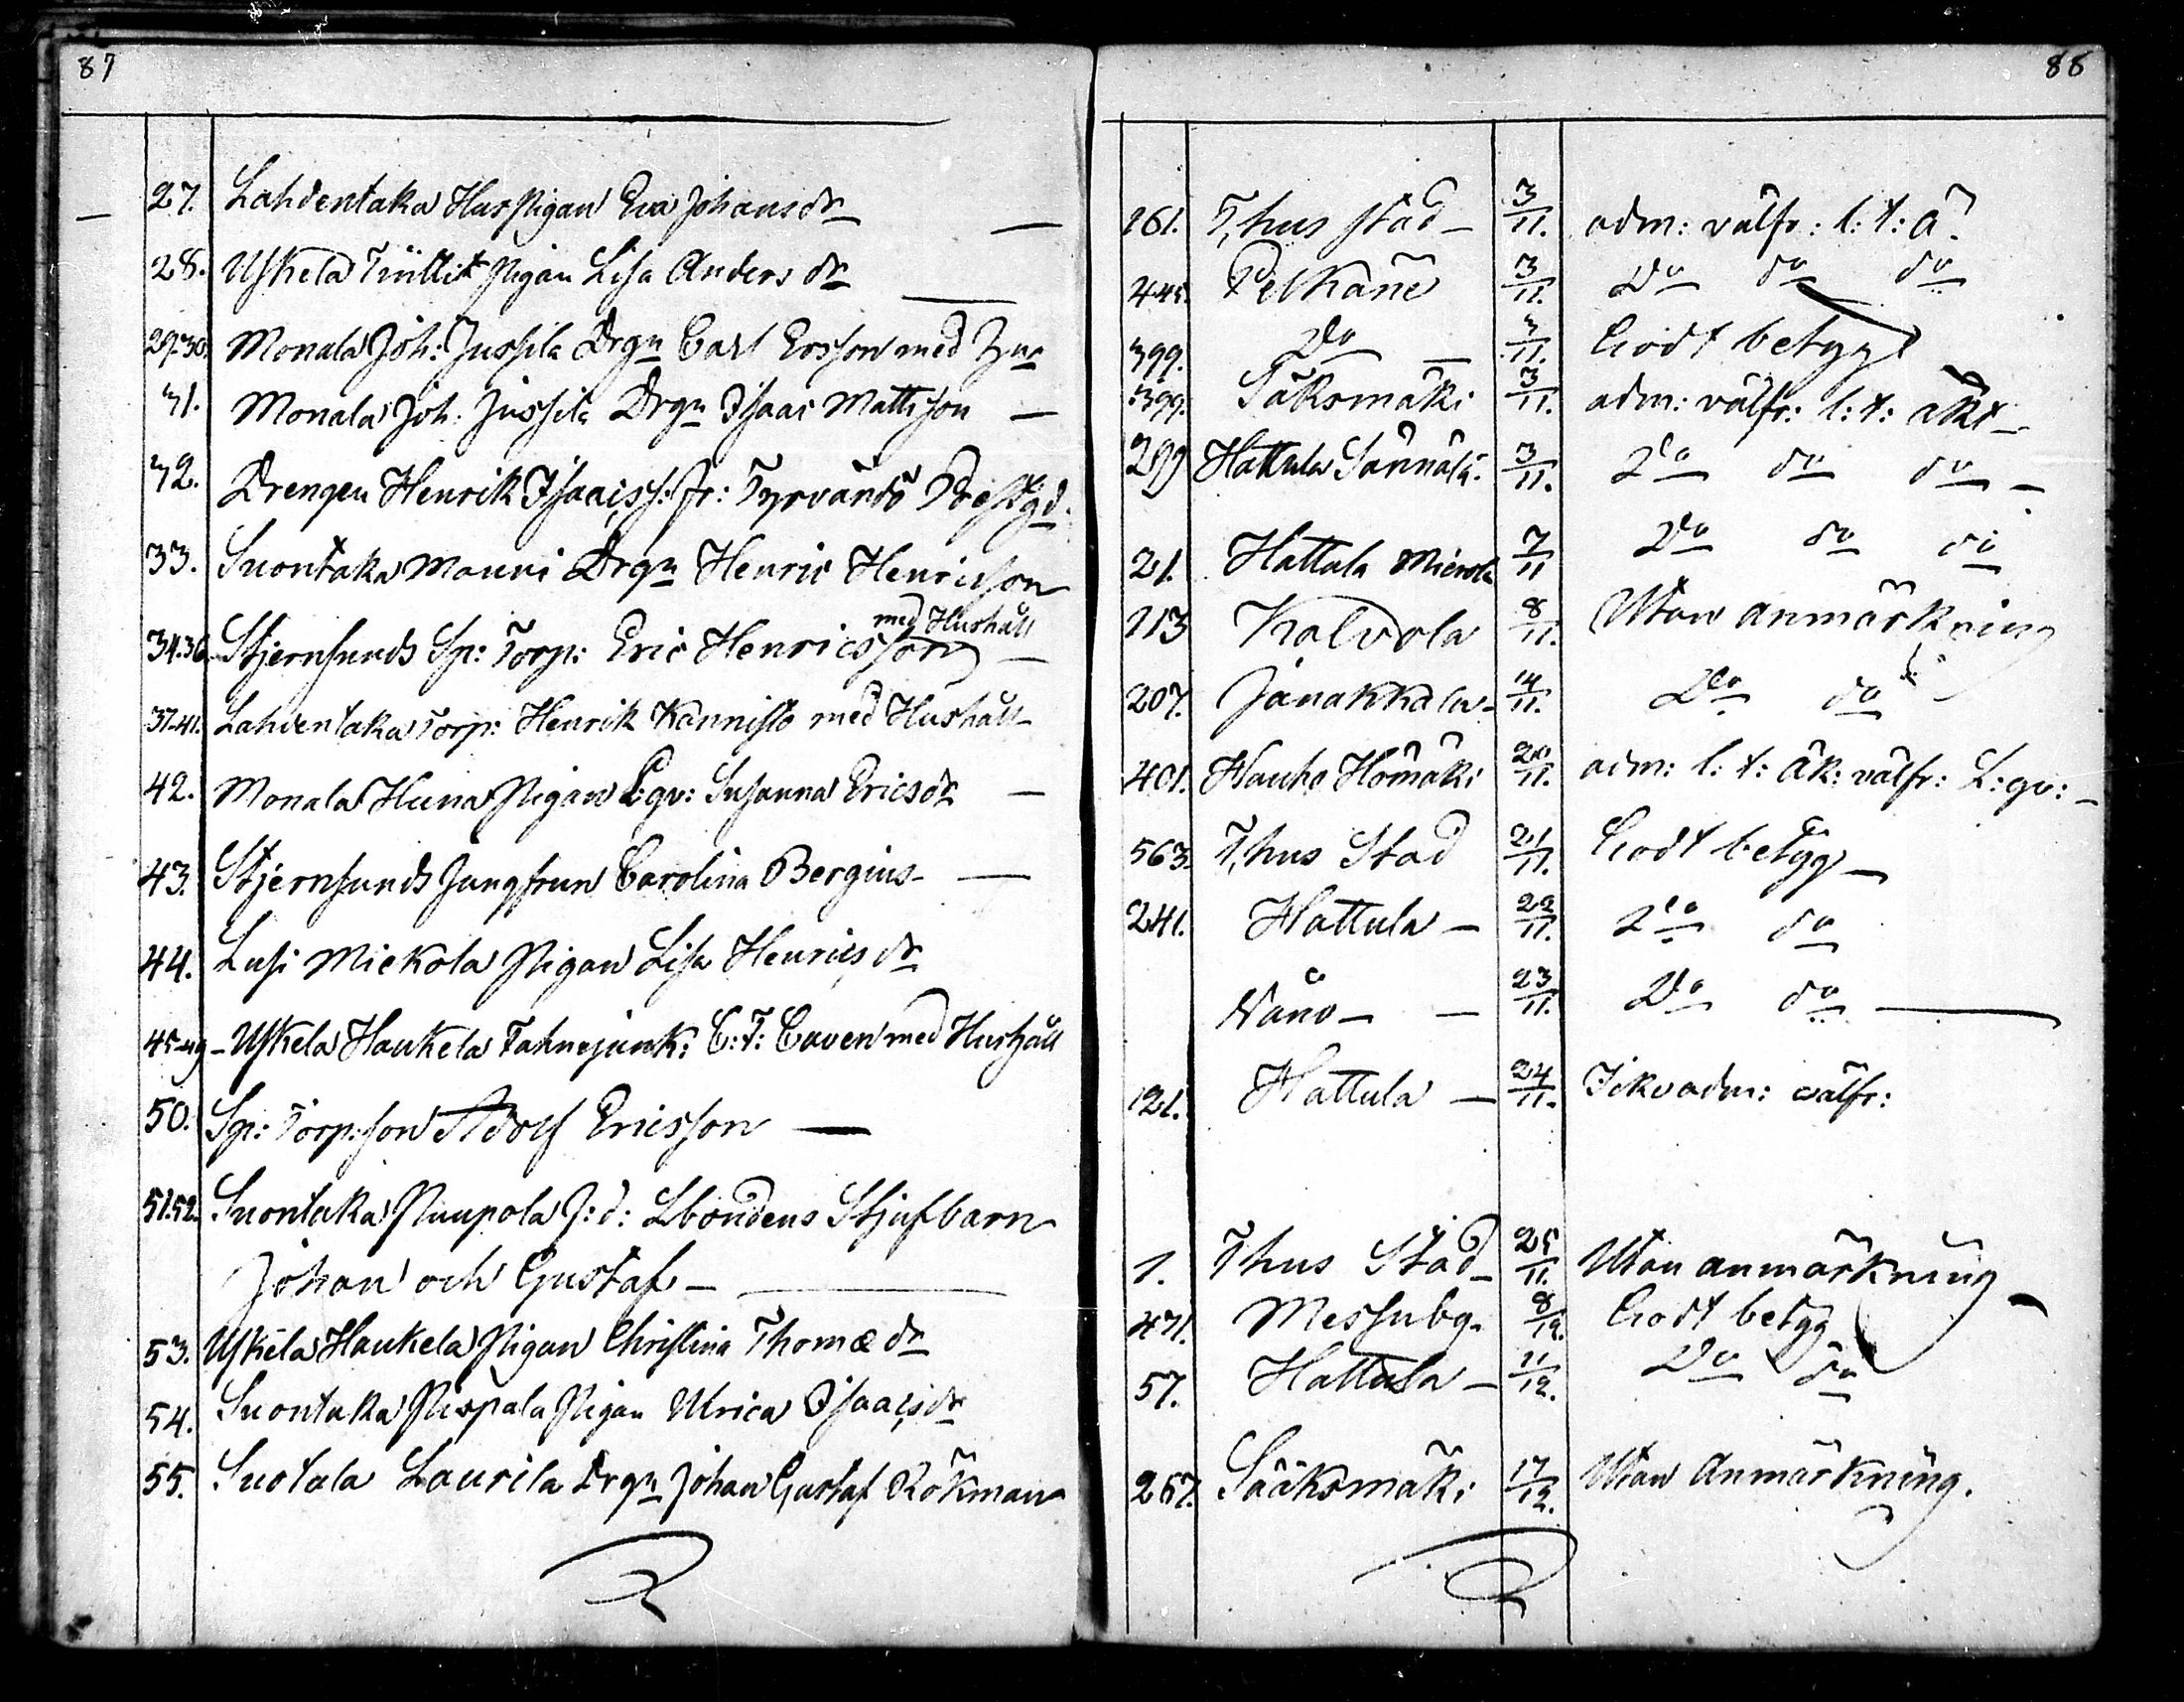 87
27. Lahdentaka Hus Pigan Eva Johansdr
28. Uskela Pigan Lisa Andersdr
29-30. Monala Joh: Jussila Drgn Carl Ersson med
31. Monala Joh: Jussila Drgn Isaac Mattsson
32. Drengen Henrik Isaacss: fr: Tyrväntö Prestgd.
33. Suontaka Mauni Drgn Henric Henricsson
med Hushåll
34-36. Stjernsunds Sp: Torp: Eric Henricsson
37-41. Lahdentaka Torp: Henrik Kannisto med Hushåll
42. Monala Huna Pigan L:gv: Susanna Ericsdr
43. Stjernsunds Jungfrun Carolina Bergius
44. Lusi Mickola Pigan Lisa Henricsdr
45-49 Uskela Haukela Fahnejunk: C:F: Caven med Hushåll
50. Sp: Torp:son Adolf Ericsson
51.52. Suontaka J:d: Lbondens Stjufbarn
Johan och Gustaf
53. Uskela Haukela Pigan Christina Thomædr
54. Suontaka Pispala Pigan Ulrica Isaacsdr
55. Suotala Laurila Drgn Johan Gustaf Rökman
88
161. T,hus stad 3/11. adm: välfr: l: t: å
445. Pelkäne 3/11. Do do do
399. Do 3/11. Godt betyg
399. Säksmäki 3/11. adm: välfr: l: t: äkt
299 Hattula 3/11. Do do do
21. Hattula 7/11 Do do do
113 Kalvola 8/11. Utan anmärkning
207. Janakkala 14/11. Do do
401. Hauho 20/11. adm: l: t: äk: välfr: L:gv:
563. T,hus Stad 21/11. Godt betyg
241. Hattula 22/11. Do do
Nåno 23/11. Do do
121. Hattula 24/11. Ickeadm: välfr:
1. T,hus Stad 25/11. Utan anmärkning
471. Messuby 8/12. Godt betyg
57. Hattula 11/12. Do do
267. Sääksmäki 17/12. Utan Anmärkning.